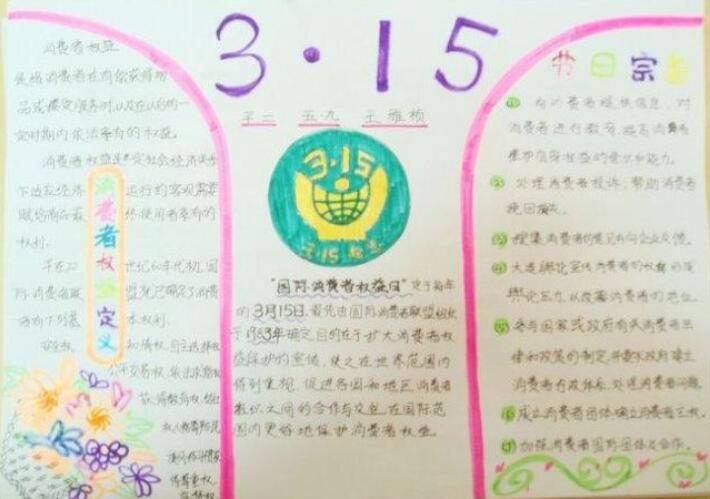 3·15
平二 五·九 王雅桢
消费者权益
是指消费者在有偿获得商
品或接受服务时,以及在以后的一
定时期内依法享有的权益。
消费者权益是一定社会经济关系
下适应经济 运行的客观需要
赋给商品最 终使用者享有的
权利。
世纪60年代初,国
际消费者联 盟就已确定了消费
本权利.
安全权 知情权,自主选择权
公平交易权,依法求偿权
消费者权益定义
3·15
3·15标志
"国际消费者权益日"定于每年
的3月15日.最先由国际消费者联盟组织
于1983年确定,目的在于扩大消费者权
益保护的宣传,使之在世界范围内
得到重视,促进各国和地区消费者
组织之间的合作与交往,在国际范
围内更好地保护消费者权益。
节日宗旨
① 向消费者提供信息,对
消费者进行教育,提高消费者
维护自身权益的意识和能力。
② 处理消费者投诉,帮助消费者
挽回损失。
③ 搜集消费者的意见并向企业反馈。
④ 大造舆论,宣传消费者的权利,形成
舆论压力,以改善消费者的地位。
⑤ 参与国家或政府有关消费者法
律和政策的制定,并要求政府建立
消费者行政体系,处理消费者问题
⑥ 成立消费者团体,确立消费者主权。
⑦ 加强消费者国际团体及合作。